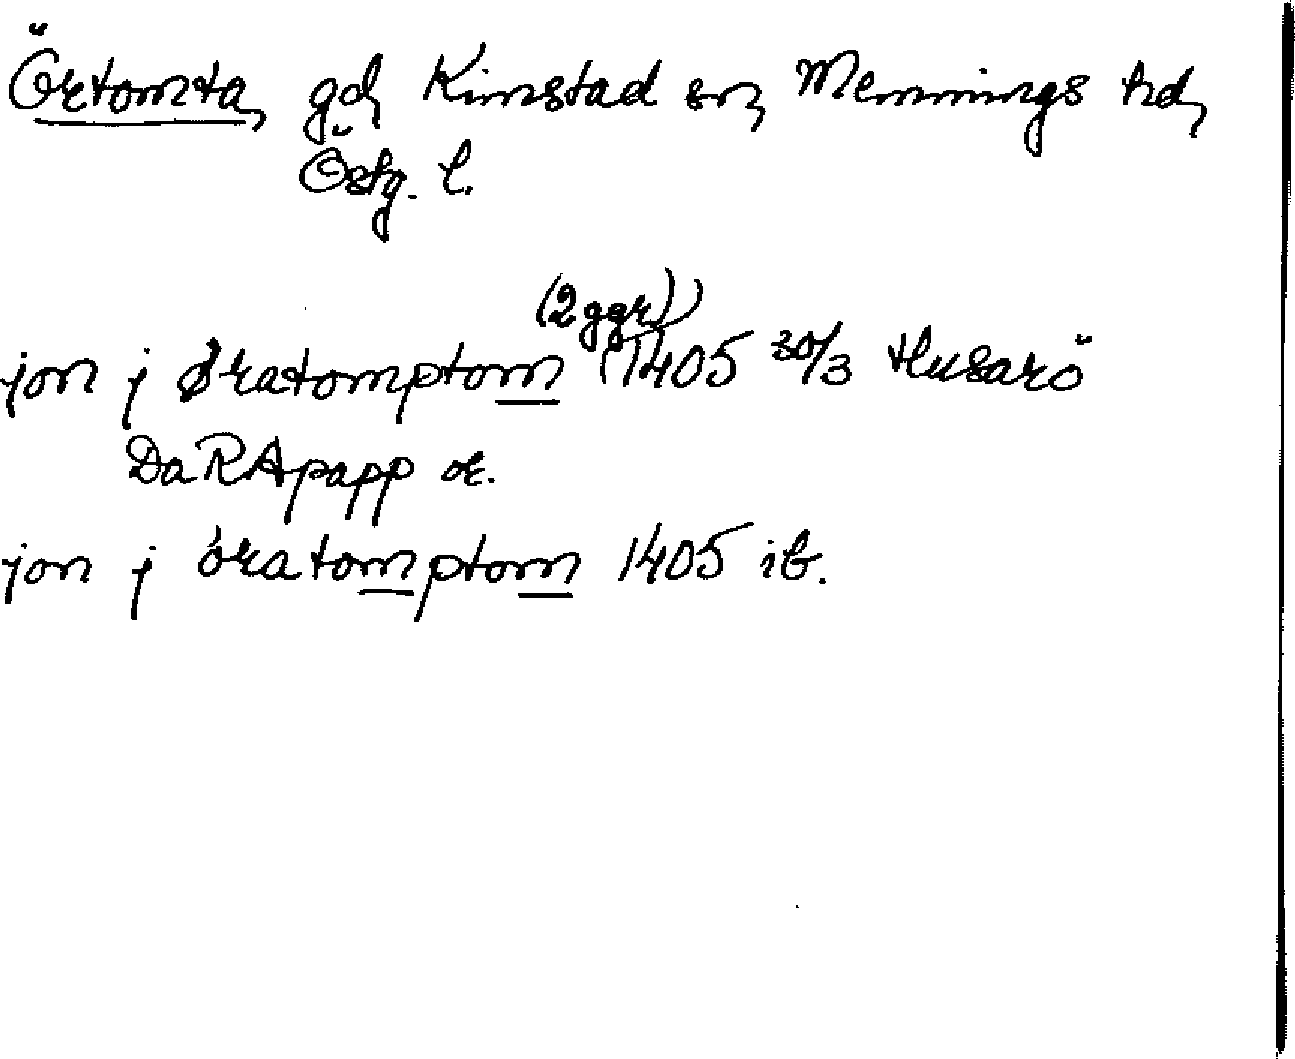 Örtomta, gd, Kimstad sn, Memmings hd,
Östg. l.
jon j Øratomptom (2 ggr) (1405 30/3 Husarö
DaRApapp or.
jon j óratomptom 1405 ib.